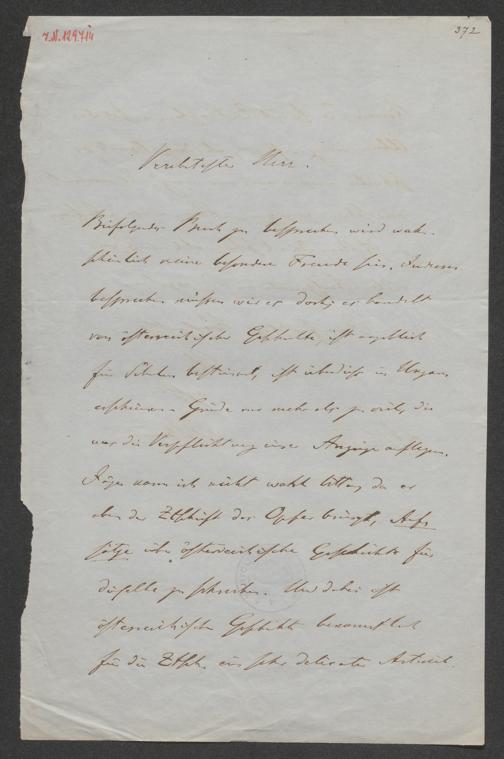 I.N. 129.714
372
Verehrtester Herr.
Beifolgendes Buch zu besprechen wird wahr-
scheinlich keine besondere Freude sein. Indessen
besprechen müssen wir es doch; es handelt
von österreichischer Geschichte, ist angeblich
für Schulen bestimmt, ist überdies in Ungarn
erschienen – Gründe mehr als zu viele, die
uns die Verpflichtung einer Anzeige auflegen.
Jäger kann ich nicht wohl bitten, da er
eben der Ztschrift das Opfer bringt, Auf-
sätze über österreichische Geschichte für
dieselbe zu schreiben. Und dabei ist
österreichische Geschichte bekanntlich
für die Ztsch. ein sehr delicater Artikel.